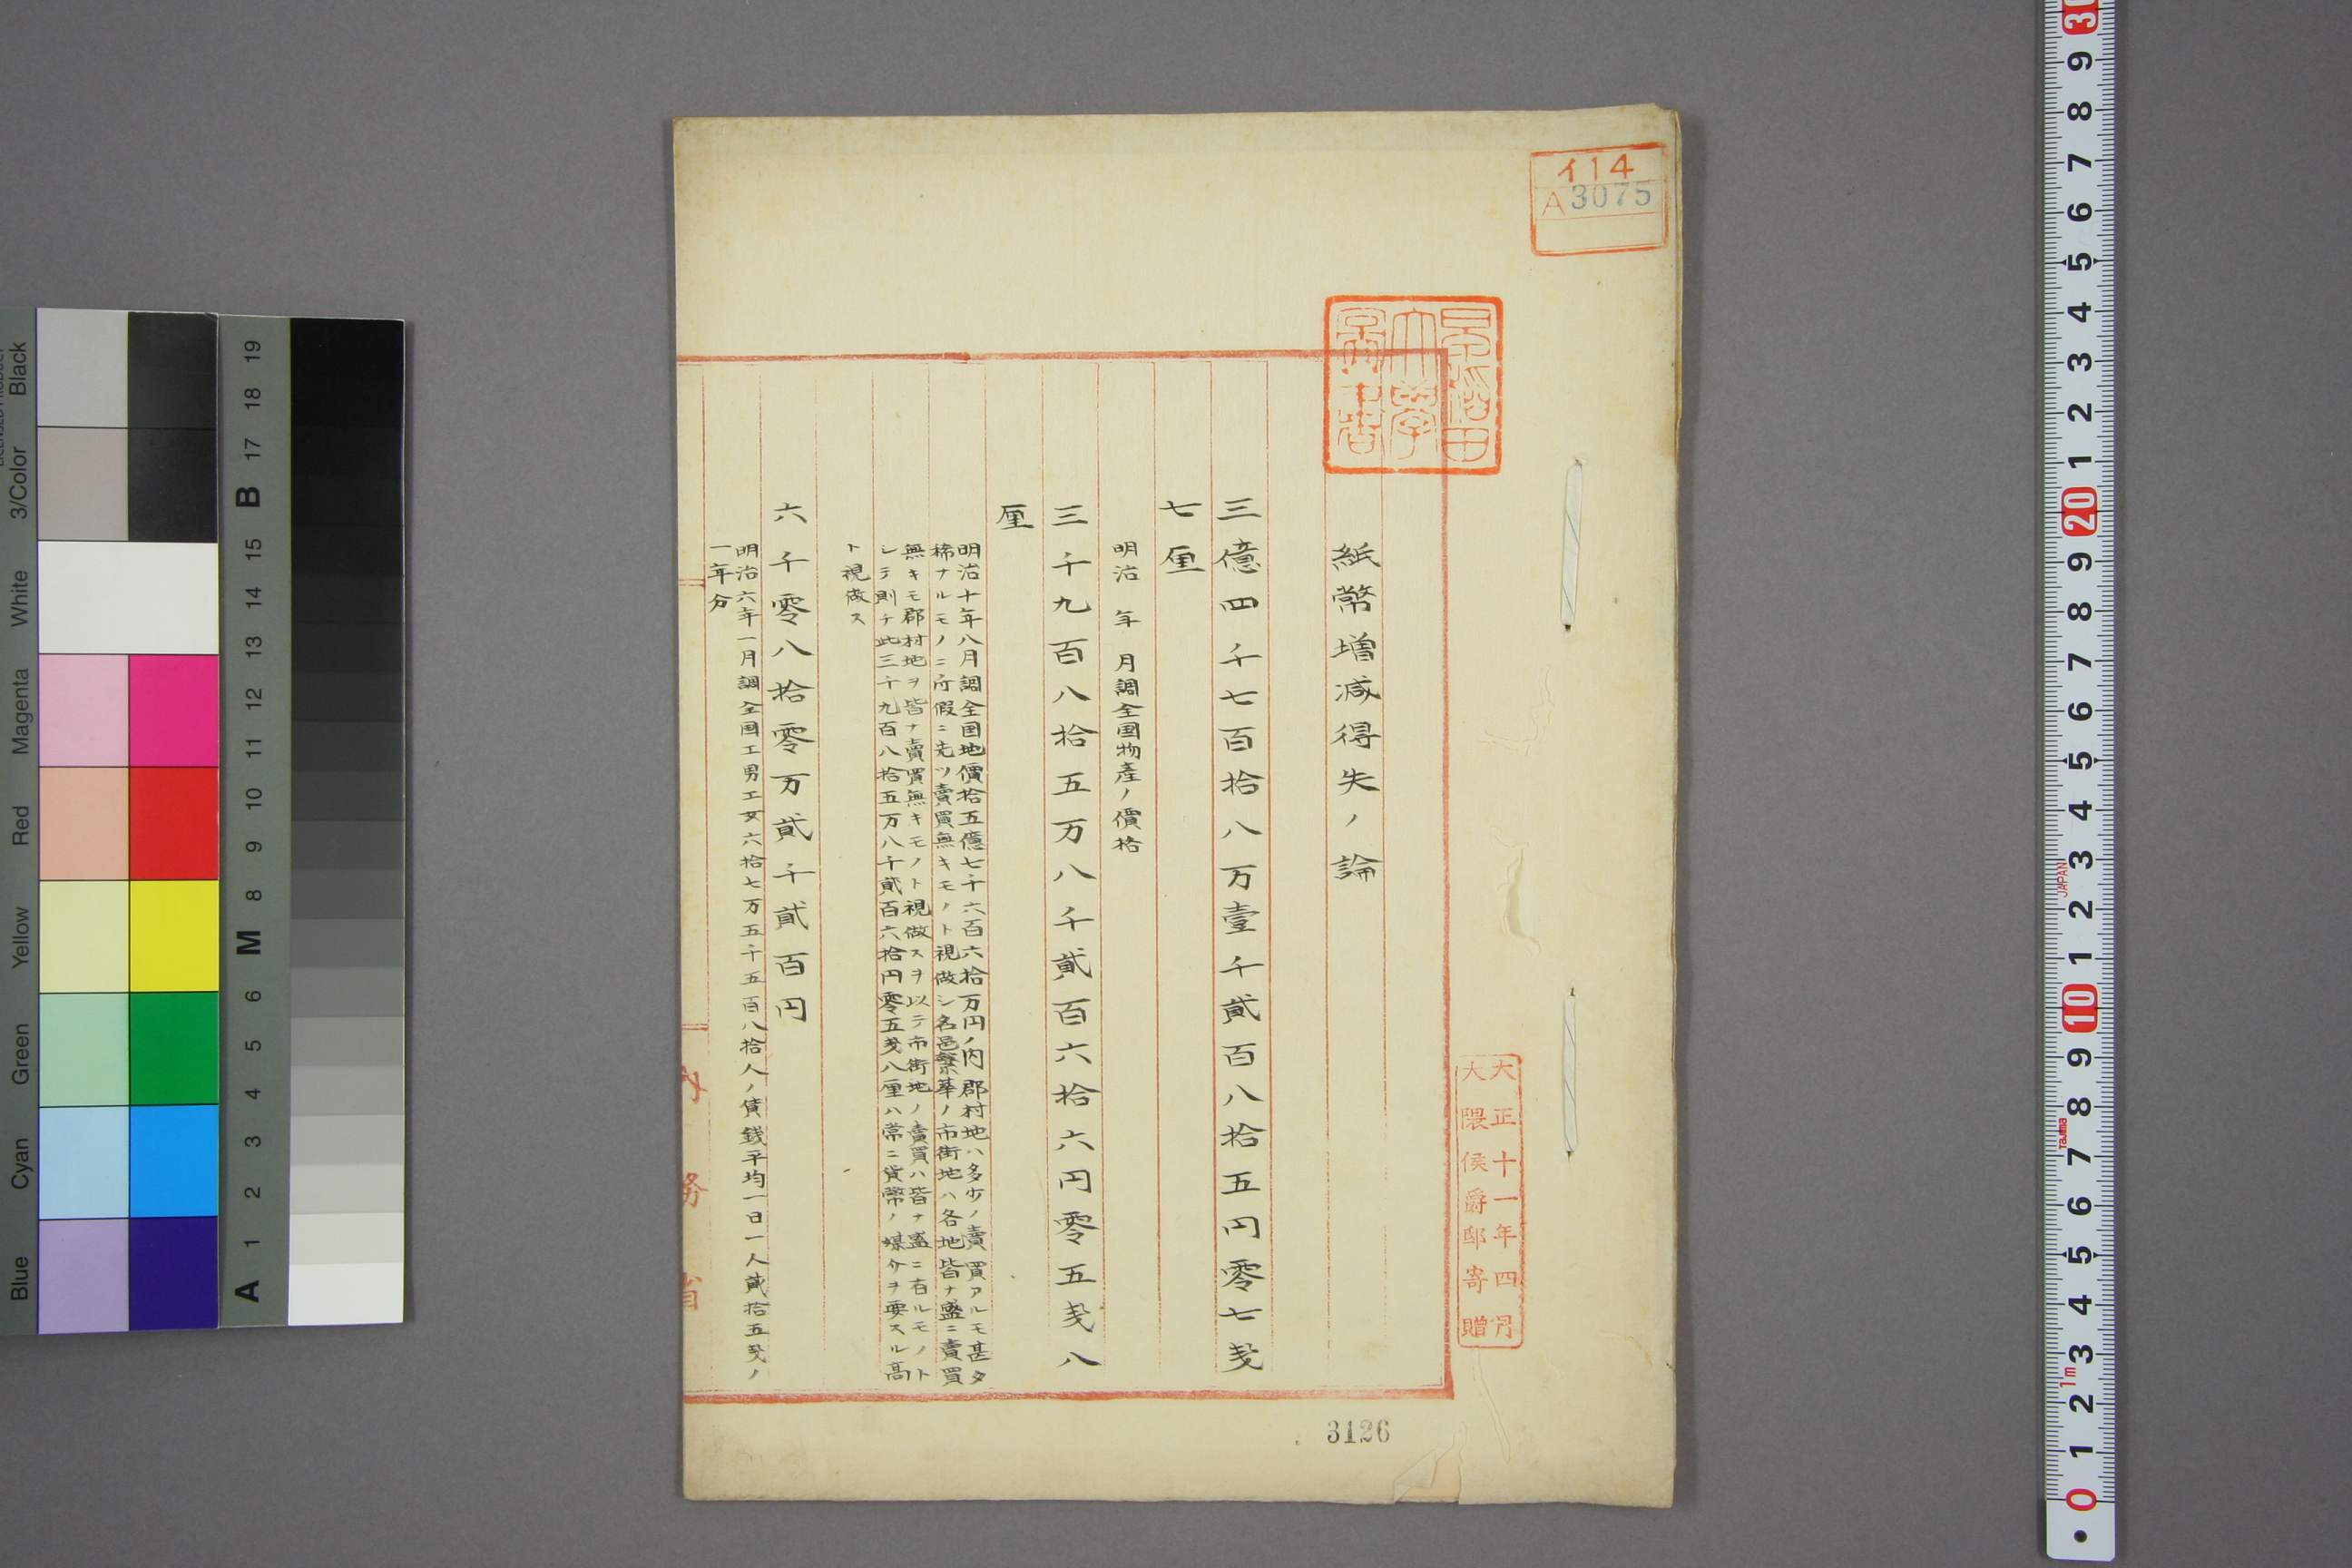 イ14
A3075
早稲田
大學
圖書
大正十一年四月
大隈侯爵邸寄贈
紙幣増減得失ノ論
三億四千七百拾八万壹千貳百八拾五円零七戔
七厘
明治　年　月調全国物産ノ價格
三千九百八拾五万八千貳百六拾六円零五戔八
厘
明治十年八月調全国地價拾五億七千六百六拾万円ノ内郡村地ハ多少ノ賣買アルモ甚タ
稀ナルモノニ所假ニ先ツ賣買無キモノト視做シ名邑繁華ノ市街地ハ各地皆ナ盛ニ賣買
無キモ郡村地ヲ皆ナ賣買無キモノト視做スヲ以テ市街地ノ賣買ハ皆ナ盛ニ有ルモノト
シテ則チ此三千九百八拾五万八千貳百六拾円零五戔八厘ハ常ニ貨幣ノ媒介ヲ要スル高
ト視做ス
六千零八拾零万貳千貳百円
明治六年一月調全国工男工女六拾七万五千五百八拾人ノ賃錢平均一日一人貳拾五戔ノ
一年分
内務省
3126
Black
3/Color
White
Magenta
Red
Yellow
Green
Cyan
Blue
A 1 2 3 4 5 6 M 8 9 10 11 12 13 14 15 B 17 18 19
0 1 2 3 4 5 6 7 8 9 10 1 2 3 4 5 6 7 8 9 20 1 2 3 4 5 6 7 8 9 30
1m
Tajima
JAPAN